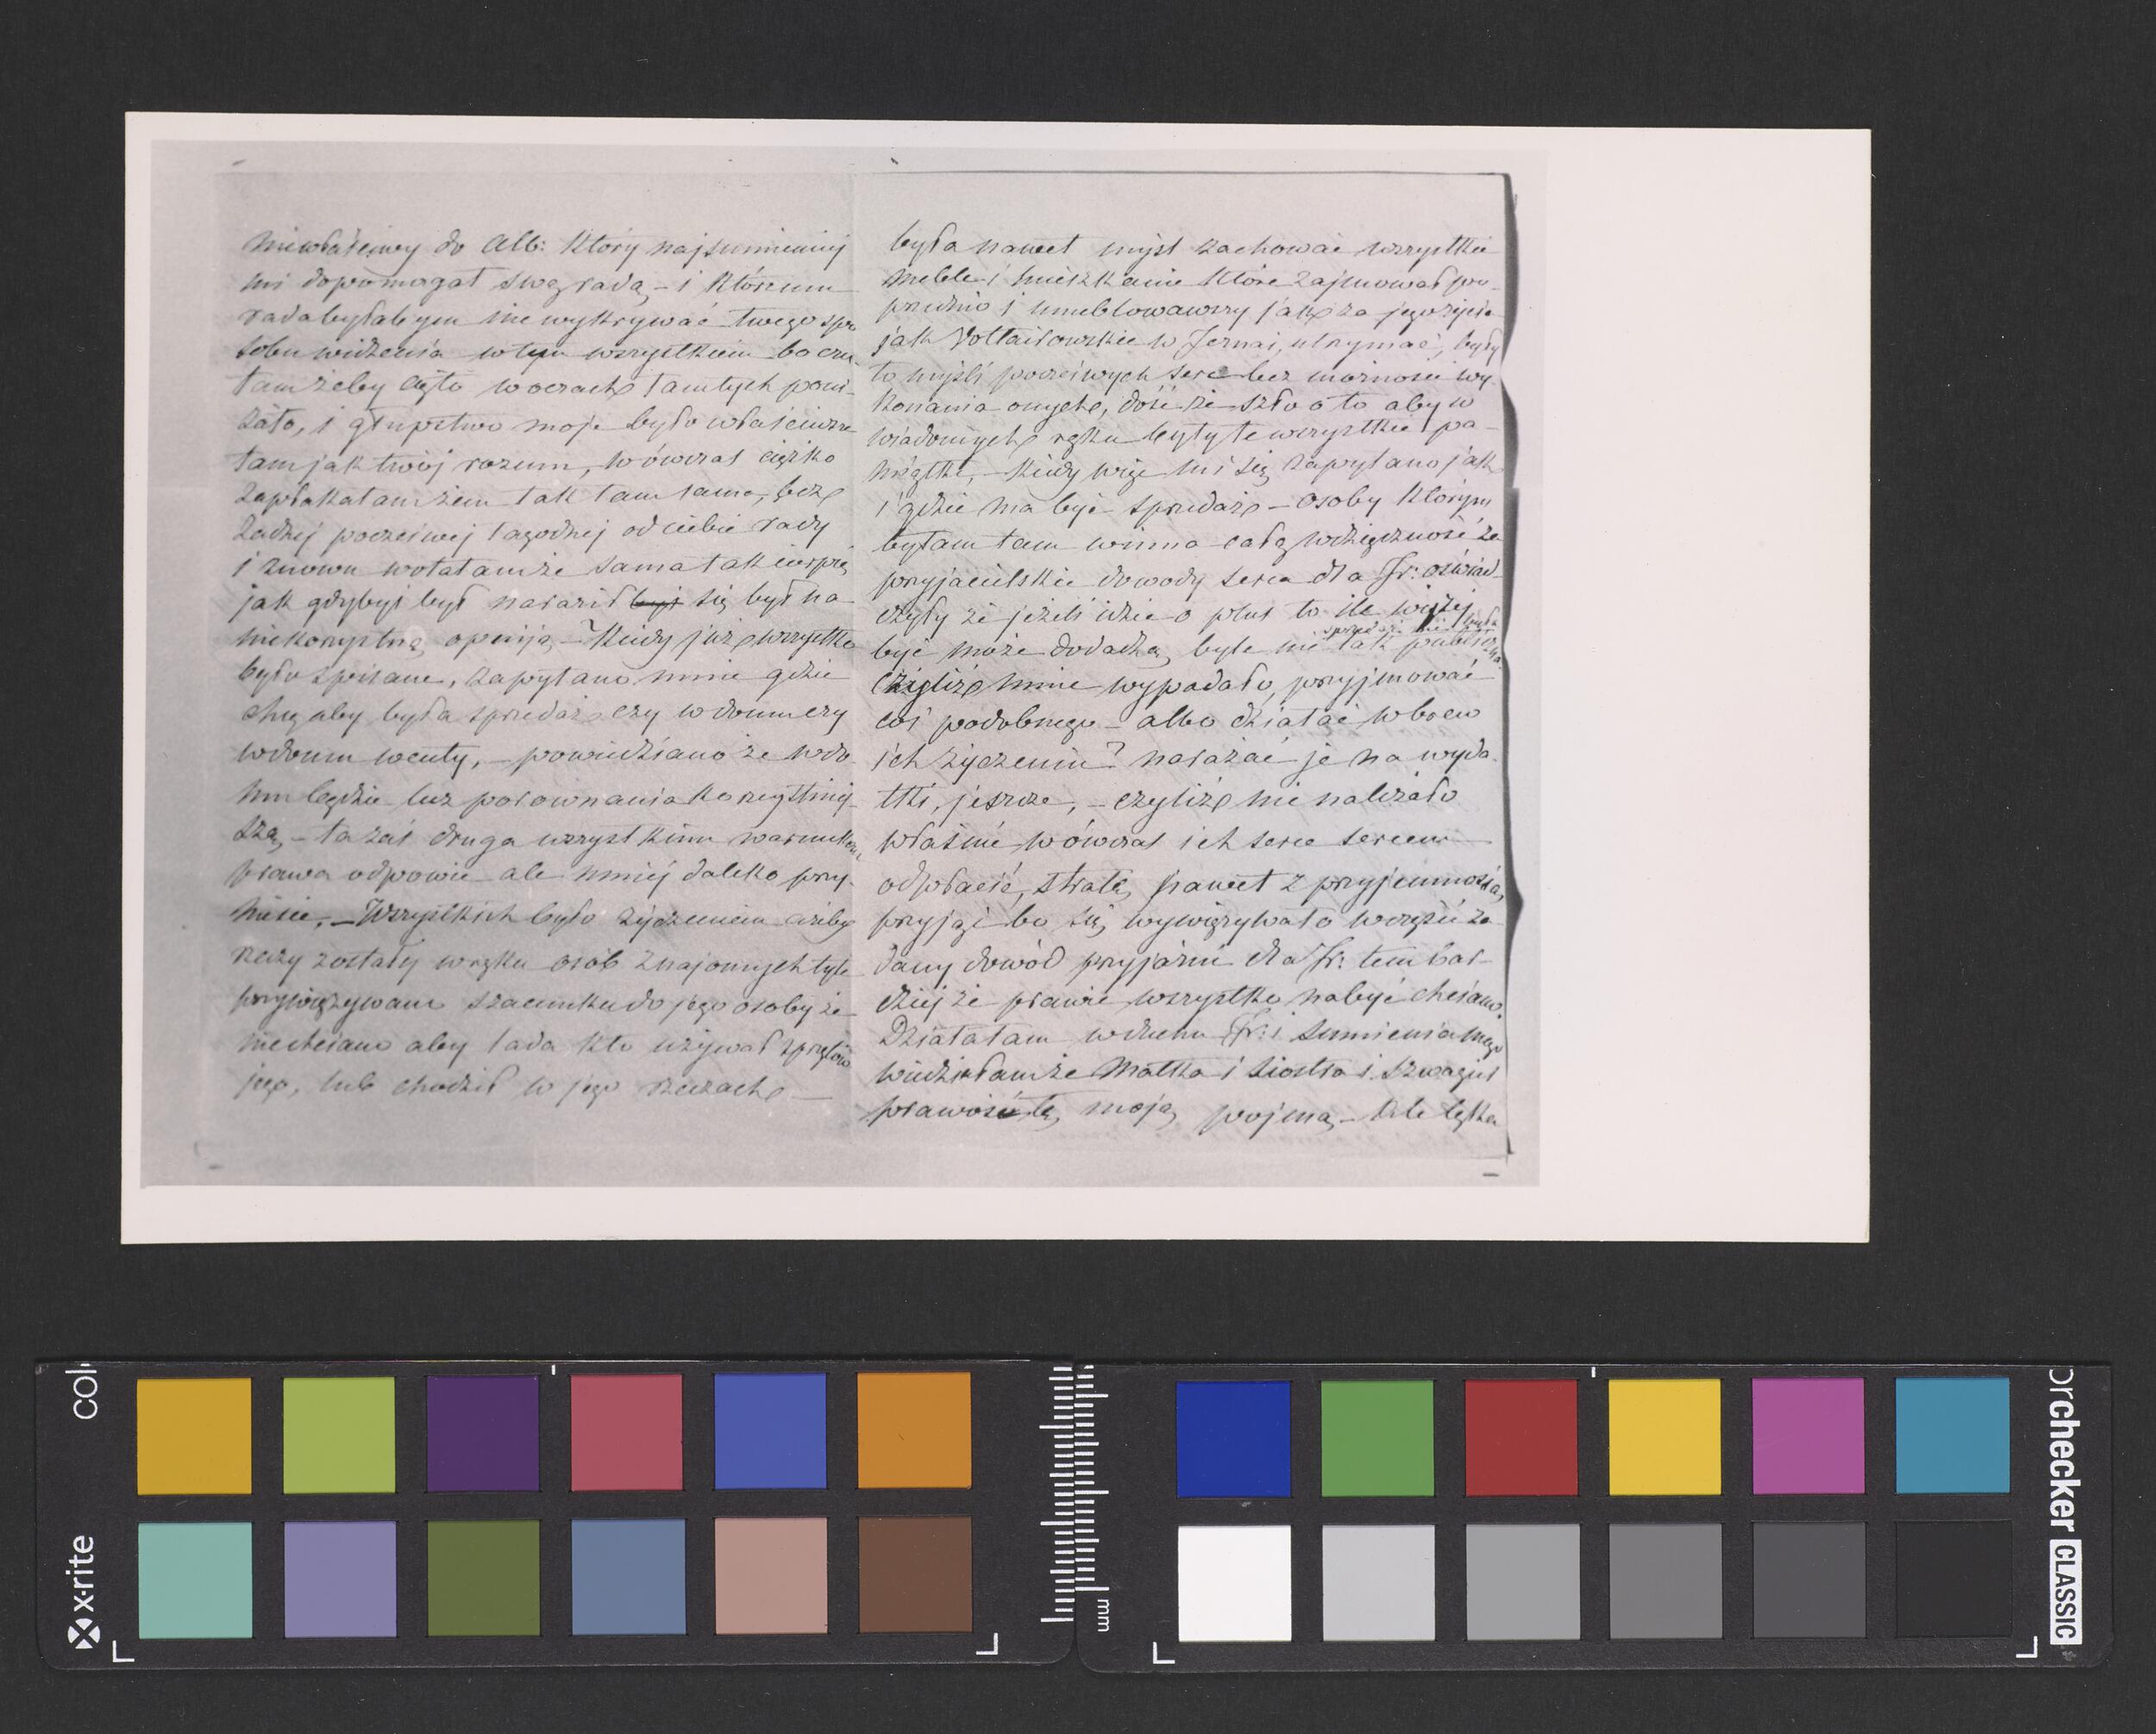 niewłaściwy do Alb: który najsumienniej
mi dopomagał swą radą – i któremu
radabyłabym nie wykrywać twego spo
sobu widzenia w tym wszystkiem bo czu
łam żeby cię to w oczach tamtych poni-
żało, i głupstwo moje było właściwsze
tam jak twój rozum, wówczas ciężko
zapłakałam żem tak tam sama, bez
żadnej poczciwej łagodnej od ciebie rady
i znowu wolałam że sama tak cierpię
jak gdybyś był naraził byś się był na
niekorzystną opinją – Kiedy już wszystko
było spisane, zapytano mnie gdzie
chcę aby była sprzedaż czy w domu czy
w domu wenty, – powiedziano że w do
mu będzie bez porównania korzystniej
szą, – ta zaś druga wszystkim warunkom
prawa odpowie ale mniej daleko przy-
niesie. – Wszystkich było życzeniem ażeby
rzeczy zostały w ręku osób znajomych tyle
przywięzywano szacunku do jego osoby że
niechciano aby lada kto używał sprzętów
jego, lub chodził w jego rzeczach –
była nawet myśl zachować wszystkie
meble i mieszkanie które zajmował po-
przednio i umeblowawszy jak za jego życia
jak Voltairowskie w Fernai, utrzymać, były
to myśli poczciwych serc bez możności wy-
konania onych, dość że szło o to aby w
wiadomych ręku były te wszystkie pa-
miątki, – Kiedy więc mi się zapytano jak
i gdzie ma być sprzedaż – osoby którym
byłam tam winna całą wdzięczność za
przyjacielskie dowody serca dla Fr: oświad-
czyły że jeżeli idzie o plus to ile więcej
sprzedaż nie była
być może dodadzą, byle nie tak publiczna
czyliż mnie wypadało, przyjmować
coś podobnego – albo działać wbrew
ich życzeniu? narażać je na wyda-
tki, jeszcze, – czyliż nie należało
właśnie wówczas ich serce sercem
odpłacić, stratę nawet z przyjemnością
przyjąć bo się wywięzywało w części za
dany dowód przyjaźni dla Fr: tem bar-
dziej że prawie wszystko nabyć chciano.
Działałam w duchu Fr: i sumienia mego
wiedziałam że Matka i Siostra i Szwagier
prawość tę moją pojmą – Ale lękka